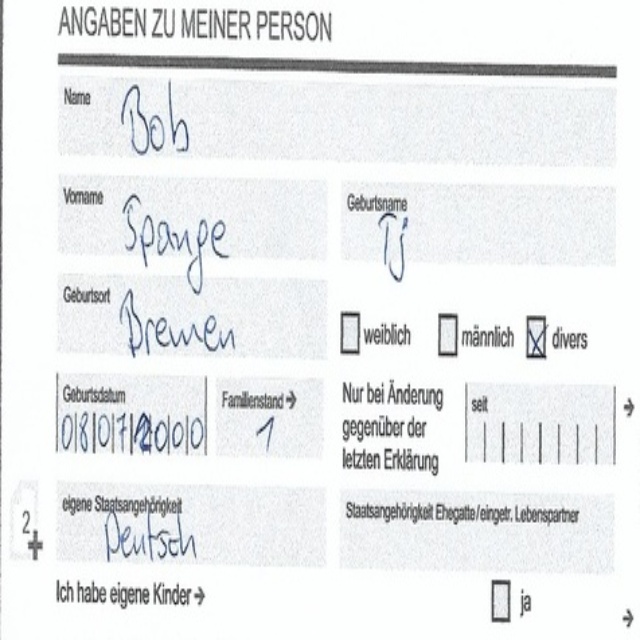 ANGABEN ZU MEINER PERSON
Name Bob
Vorname Spange
Geburtsname Tj
Geburtsort Bremen
weiblich männlich divers
Geburtsdatum 08072000
Familienstand → 1
Nur bei Änderung
gegenüber der
letzten Erklärung
seit →
eigene Staatsangehörigkeit Deutsch
Staatsangehörigkeit Ehegatte/eingetr. Lebenspartner
2
+
Ich habe eigene Kinder → ja →